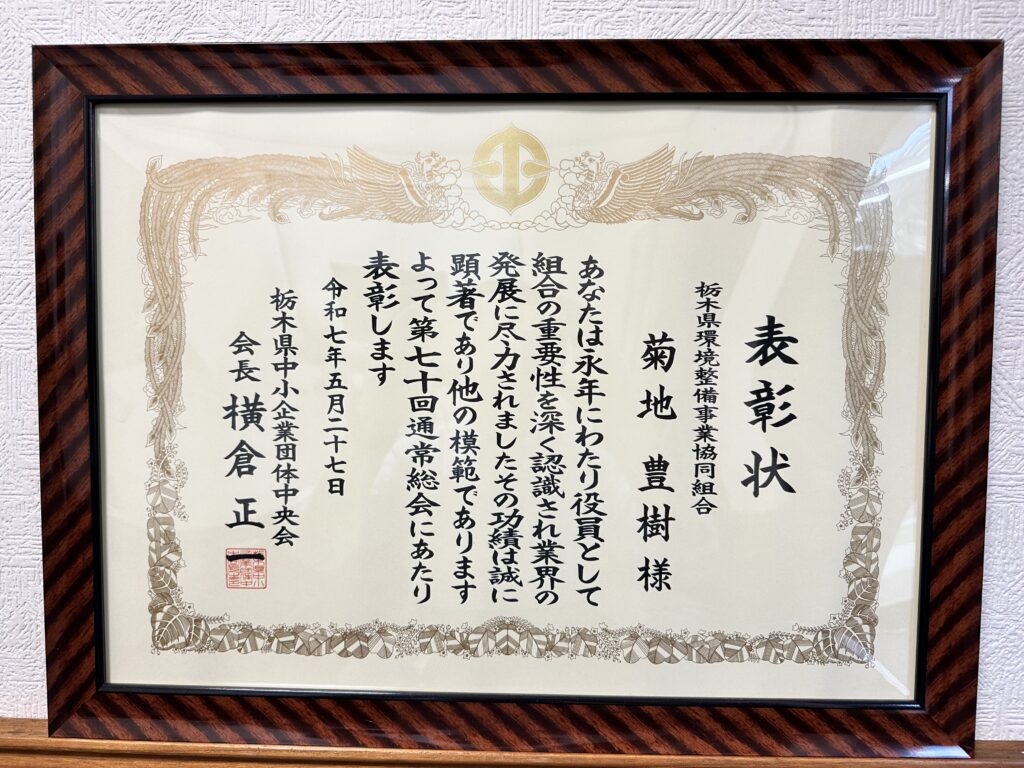 表彰状
栃木県環境整備事業協同組合
菊地豊樹様
あなたは永年にわたり役員として
組合の重要性を深く認識され業界の
発展に尽力されましたその功績は誠に
顕著であり他の模範であります
よって第七十回通常総会にあたり
表彰します
令和七年五月二十七日
栃木県中小企業団体中央会
会長横倉正一